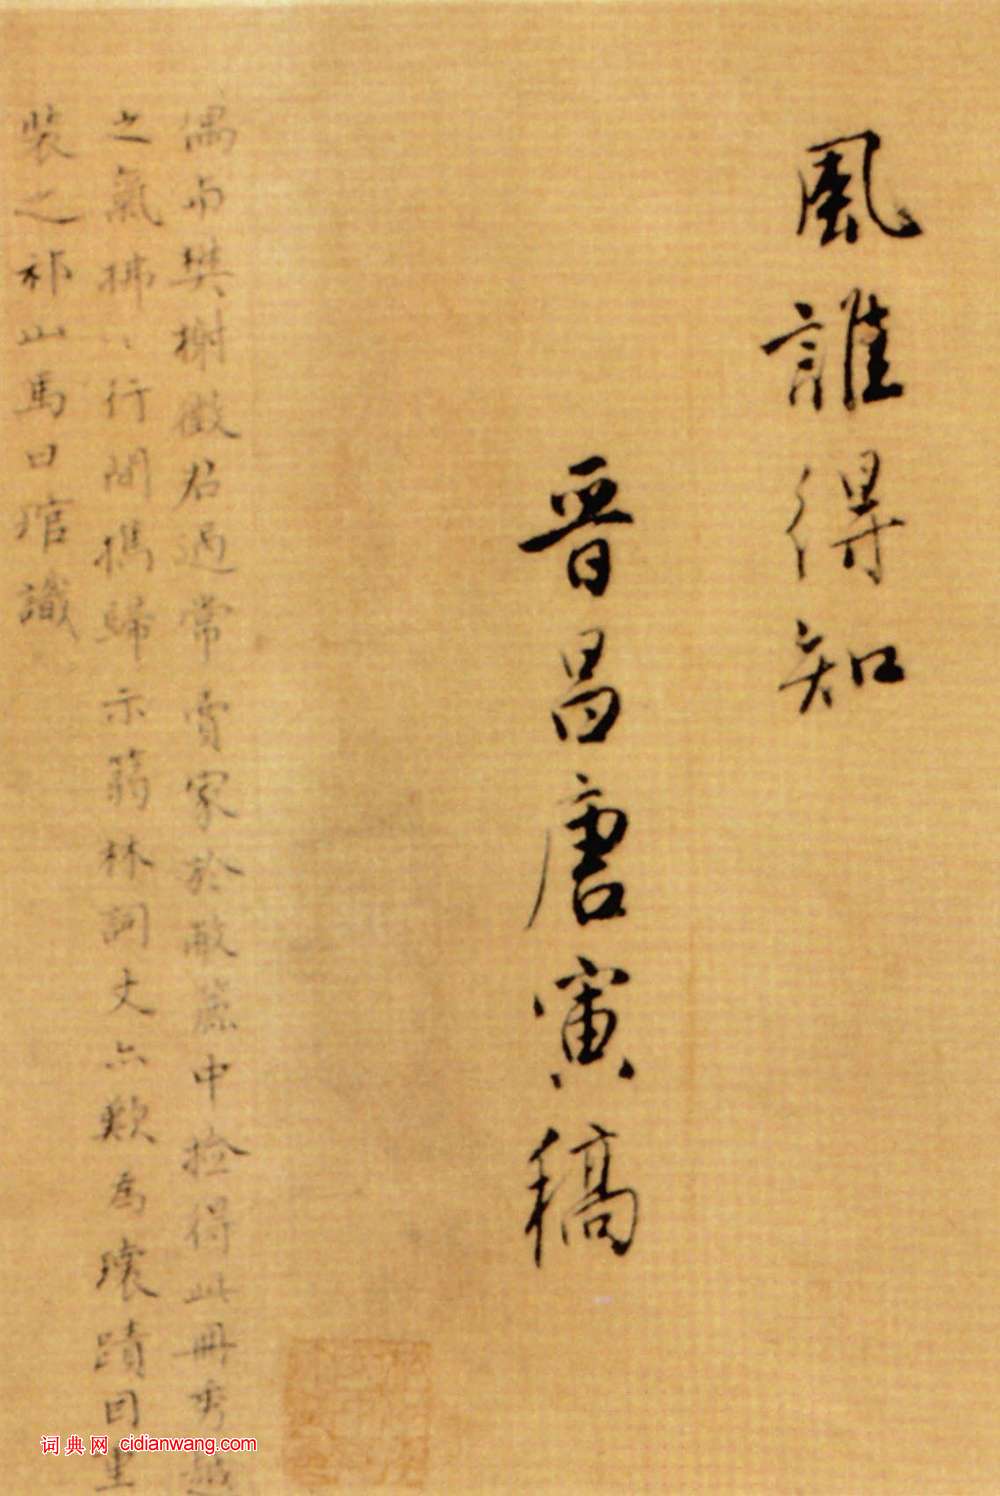 風誰得知
晉昌唐寅稿
偶與樊榭徵君過常賣家於敝簏中撿得此冊秀越
之氣拂拂行間攜歸示筠林詞丈亦歎為瓌蹟因重
裝之祁山馬曰琯識
词典网 cidianwang.com